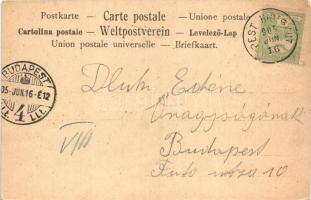 Postkarte - Carte postale - Unione postale
Cartolina postale - Weltpostverein - Levelező-Lap
Union postale universelle - Briefkaart.
BUDAPEST
905 JUN. 16
BUDAPEST
905.JUN.16-E12
4
VII
Edéné
Nagyságának
Budapest
utcza 10